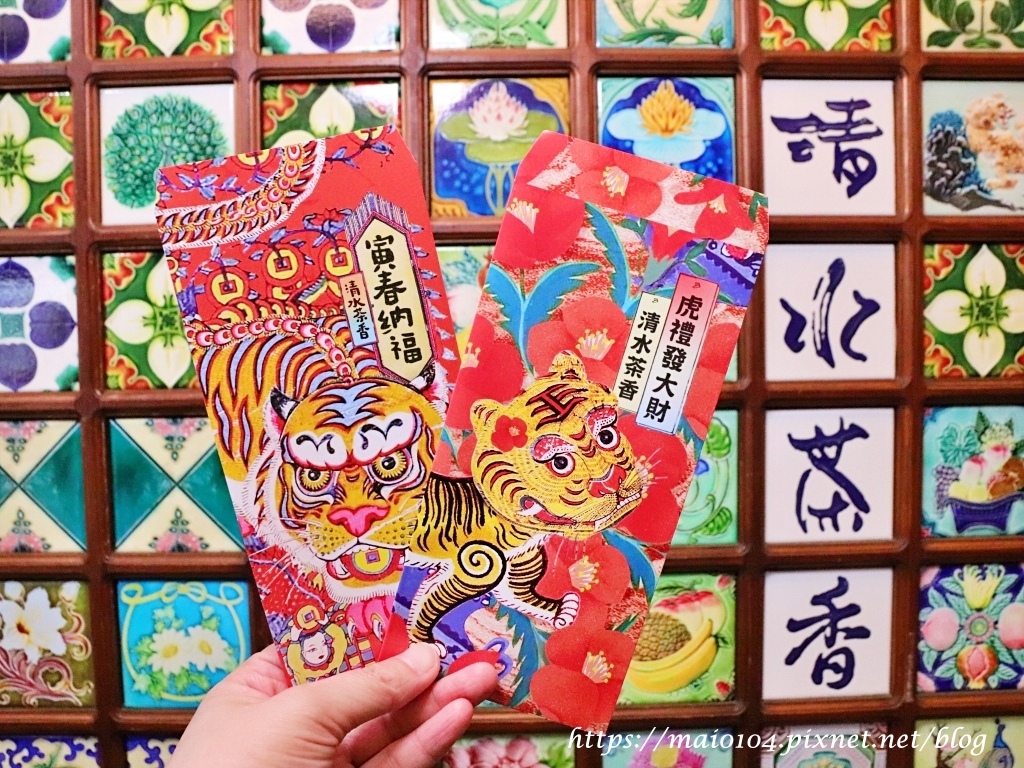 寅春纳福
清水茶香
虎禮發大財
清水茶香
清
水
茶
香
https://maio104.pixnet.net/blog